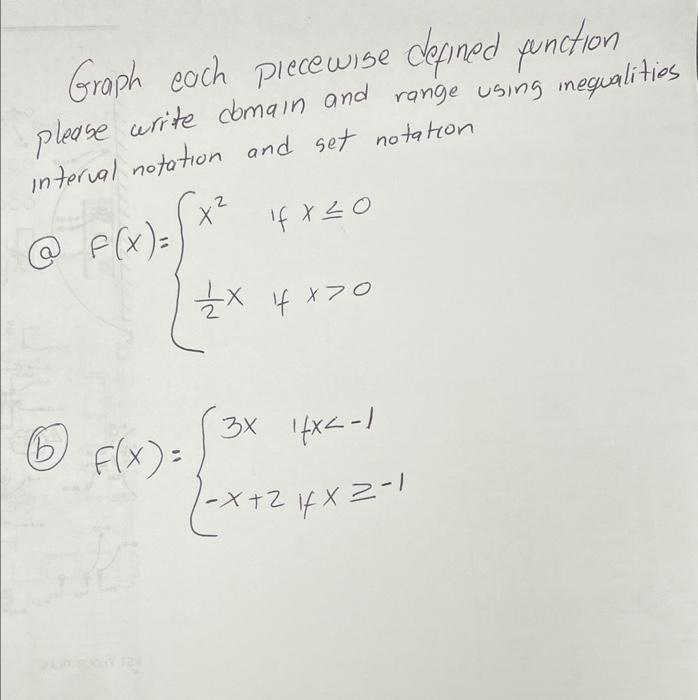 Graph each piecewise defined function
please write domain and range using inequalities
interval notation and set notation
(a) F(x) = { x² if x ≤ 0
1/2 x if x > 0
(b) F(x) = { 3x if x < -1
-x + 2 if x ≥ -1